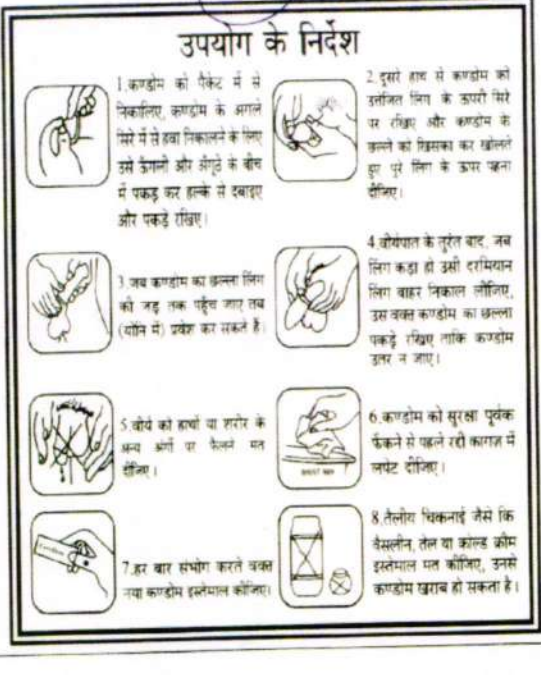 उपयोग के निर्देश
1.कण्डोम को पैकेट में से
निकालिए, कण्डोम के अगले
सिरे में से हवा निकालने के लिए
उसे ऊँगली और अंगूठे के बीच
में पकड़ कर हल्के से दबाइए
और पकड़े रखिए।
2.दूसरे हाथ से कण्डोम को
उत्तेजित लिंग के ऊपरी सिरे
पर रखिए और कण्डोम के
छल्ले को खिसका कर खोलते
हुए पूरे लिंग के ऊपर पहना
दीजिए।
3.जब कण्डोम का छल्ला लिंग
की जड़ तक पहुँच जाए तब
(योनि में) प्रवेश कर सकते हैं।
4.वीर्यपात के तुरंत बाद, जब
लिंग कड़ा हो उसी दरमियान
लिंग बाहर निकाल लीजिए,
उस वक्त कण्डोम का छल्ला
पकड़े रखिए ताकि कण्डोम
उतर न जाए।
5.वीर्य को हाथों या शरीर के
अन्य अंगों पर फैलने मत
दीजिए।
6.कण्डोम को सुरक्षा पूर्वक
फेंकने से पहले रद्दी कागज़ में
लपेट दीजिए।
7.हर बार संभोग करते वक्त
नया कण्डोम इस्तेमाल कीजिए।
8.तैलीय चिकनाई जैसे कि
वैसलीन, तेल या कोल्ड क्रीम
इस्तेमाल मत कीजिए, उनसे
कण्डोम खराब हो सकता है।